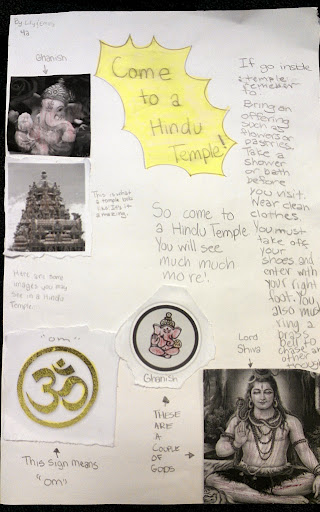 4a
Ghanish
Come
to a
Hindu
Temple!
This is what
a temple looks
amazing.
Here are some
images you may
see in a Hindu
Temple.
So come to
a Hindu Temple
You will see
much much
more!
If go inside
a temple
remember
to
Bring an
offering
such as
flowers or
pastries.
Take a
shower
or bath
before
you visit.
Wear clean
clothes.
You must
take off
your
shoes and
enter with
your right
foot. You
also must
ring a
brass
bell to
chase
other
"om"
This sign means
"om"
Ghanish
THESE
ARE
A
COUPLE
OF
GODS
Lord
Shiva